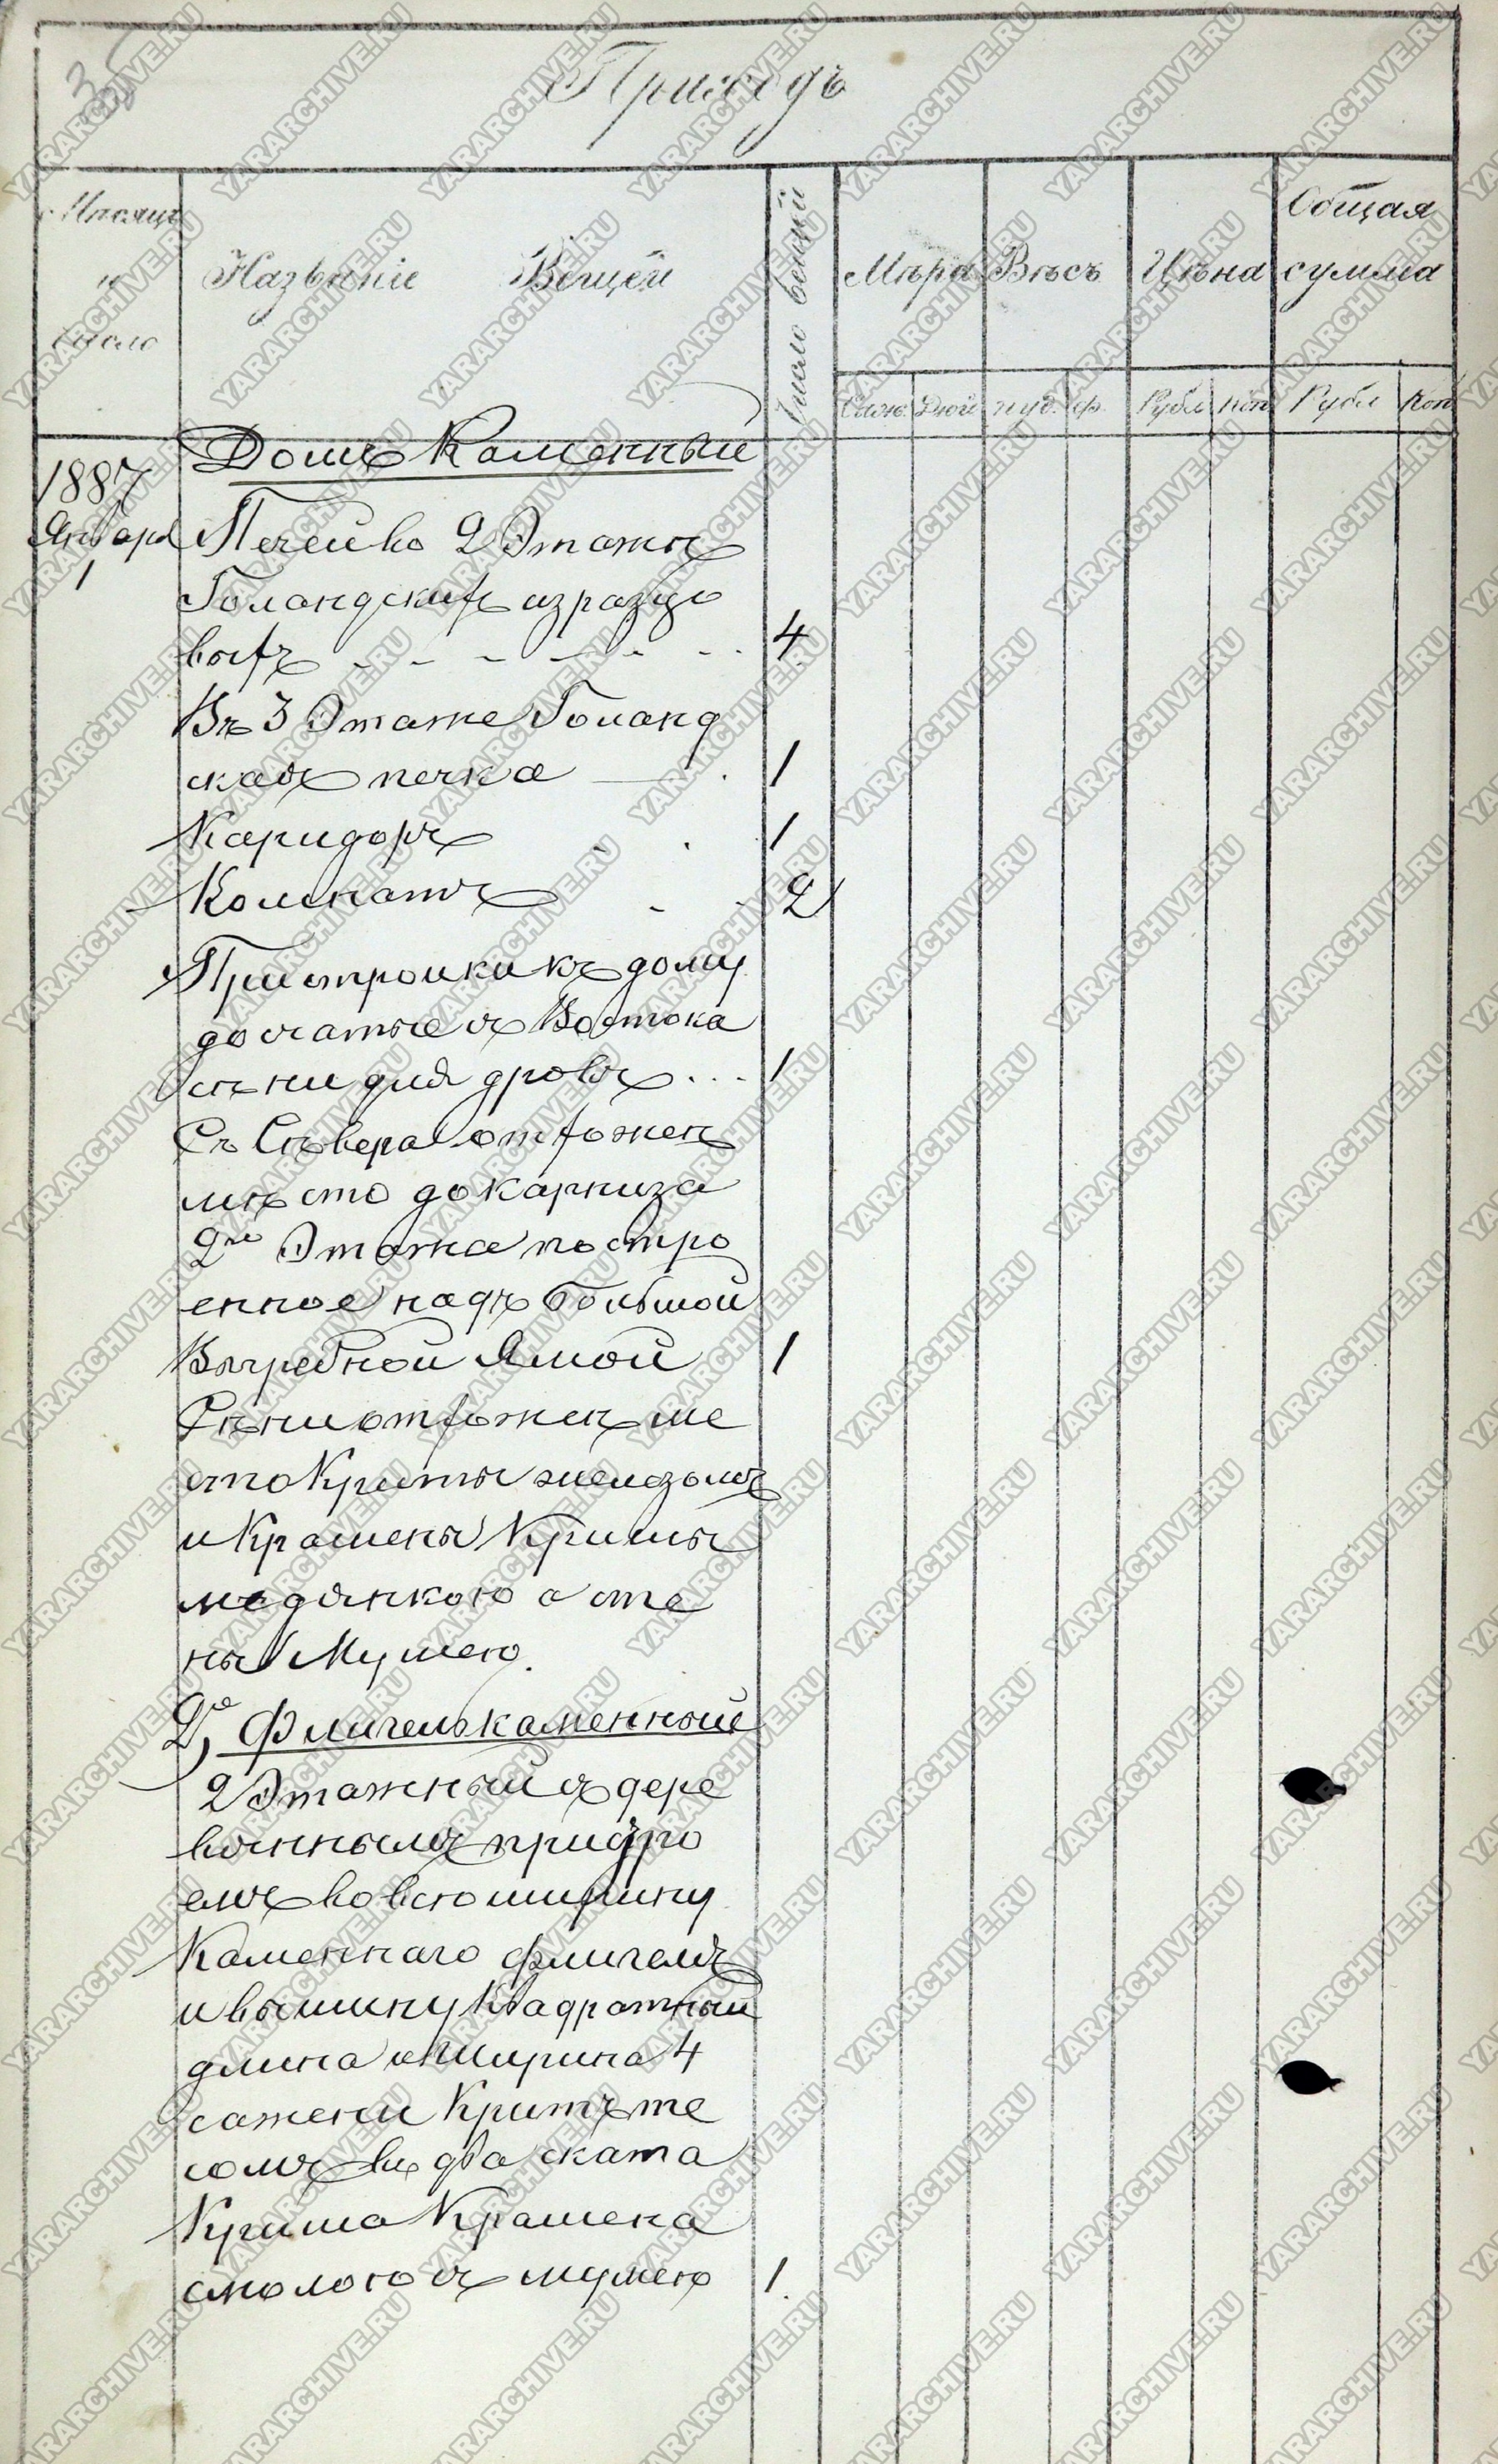 35
Приходъ
Мѣсяцъ и число
Названіе Вещей
Число вещей
Мѣра
Вѣсъ
Цѣна
Общая сумма
Саж. Дюй. пуд. ф. Рубл коп Рубл Коп
Домъ Каменный
1887
Января
1
Печей во 2 Этажѣ
Голандскихъ изразцо
выхъ - - - - - - - 4
Въ 3 Этаже Голанд
ская печка 1
Каридоръ 1
Комнатъ 2
Пристроики къ дому
досчатые съ Востока
сѣни для дровъ . . . 1
Съ Сѣвера отхожее
мѣсто до карниза
2го Этажа постро
енное надъ большой
Выгребной Ямой 1
Сѣни отхожее ме
сто Криты железомъ
и Крашены Крыши
медянкою а сте
ны Мумею.
2е, Флигель каменный
2 Этажный съ дере
вяннымъ придро
емъ во всю ширину
Каменнаго флигеля
и вышину Квадратный
длина и Ширина 4
сажени Критъ те
сомъ въ два ската
Криша Крашена
смолою съ мумею 1.
YARARCHIVE.RU